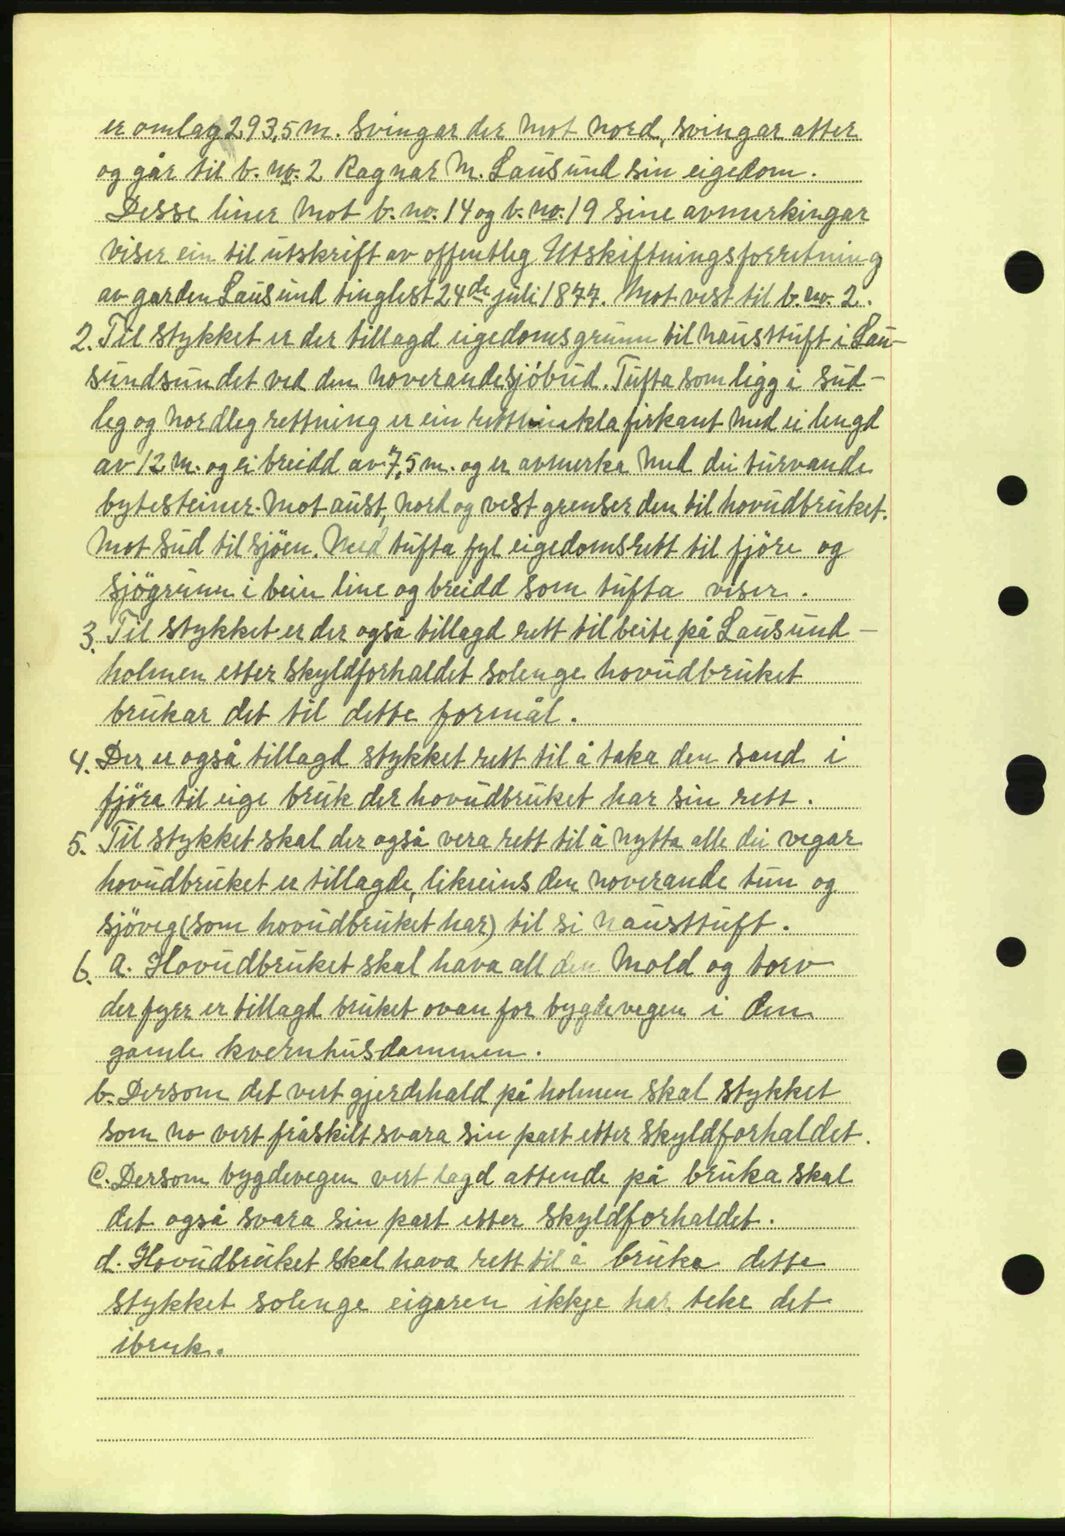 er omlag 293,5 m. svingar der mot nord, svingar atter
og går til b. no. 2 Ragnar M. Lausund sin eigedom.
Desse liner mot b. no. 14 og b. no. 19 sine avmerkingar
viser ein til utskrift av offentleg Utskiftningsforretning
av garden Lausund tinglest 24de juli 1877. Mot vest til b. no. 2.
2. Til stykket er der tillagd eigedomsgrunn til nausttuft i Lau-
sundsundet ved den noverande sjöbud. Tufta som ligg i sud-
leg og nordleg rettning er ein rettvinkla firkant med ei lengd
av 12 m. og ei breidd av 7,5 m. og er avmerka med dei turvande
bytesteiner. Mot aust, nord og vest grenser den til hovudbruket.
Mot sud til sjöen. Med tufta fyl eigedomsrett til fjöre og
sjögrunn i bein line og breidd som tufta viser.
3. Til stykket er der også tillagd rett til beite på Lausund-
holmen etter skyldforhaldet solenge hovudbruket
brukar det til dette formål.
4. Der er også tillagd stykket rett til å taka den sand i
fjöra til eige bruk der hovudbruket har sin rett.
5. Til stykket skal der også vera rett til å nytta alle dei vegar
hovudbruket er tillagde, likeeins den noverande tun og
sjöveg (som hovudbruket har) til si nausttuft.
6. a. Hovudbruket skal hava all den mold og torv
der fyrr er tillagd bruket ovan for bygdevegen i den
gamle kvernhusdammen.
b. Dersom det vert gjerdehald på holmen skal stykket
som no vert fråskilt svara sin part etter skyldforhaldet.
c. Dersom bygdevegen vert lagd attende på bruka skal
det også svara sin part etter skyldforhaldet.
d. Hovudbruket skal hava rett til å bruka dette
stykket solenge eigaren ikkje har teke det
ibruk.